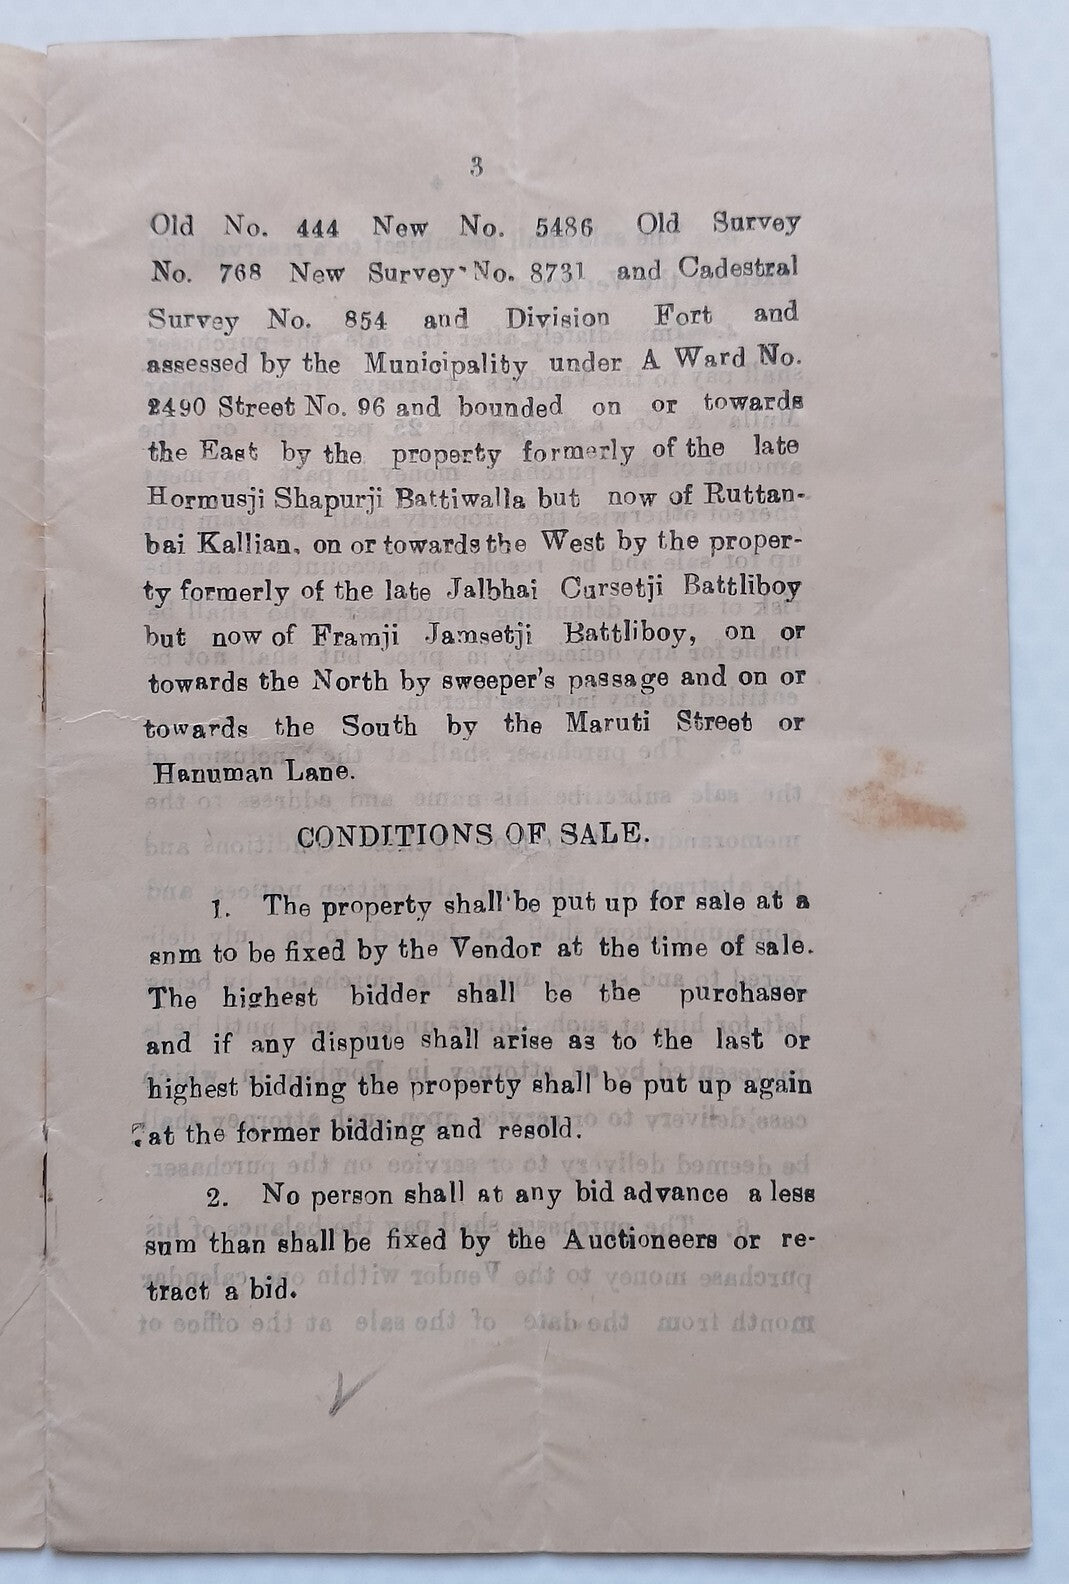 3
Old No. 444 New No. 5486 Old Survey
No. 768 New Survey No. 8731 and Cadestral
Survey No. 854 and Division Fort and
assessed by the Municipality under A Ward No.
2490 Street No. 96 and bounded on or towards
the East by the property formerly of the late
Hormusji Shapurji Battiwalla but now of Ruttan-
bai Kallian, on or towards the West by the proper-
ty formerly of the late Jalbhai Cursetji Battliboy
but now of Framji Jamsetji Battliboy, on or
towards the North by sweeper's passage and on or
towards the South by the Maruti Street or
Hanuman Lane.
CONDITIONS OF SALE.
1. The property shall be put up for sale at a
snm to be fixed by the Vendor at the time of sale.
The highest bidder shall be the purchaser
and if any dispute shall arise as to the last or
highest bidding the property shall be put up again
at the former bidding and resold.
2. No person shall at any bid advance a less
sum than shall be fixed by the Auctioneers or re-
tract a bid.